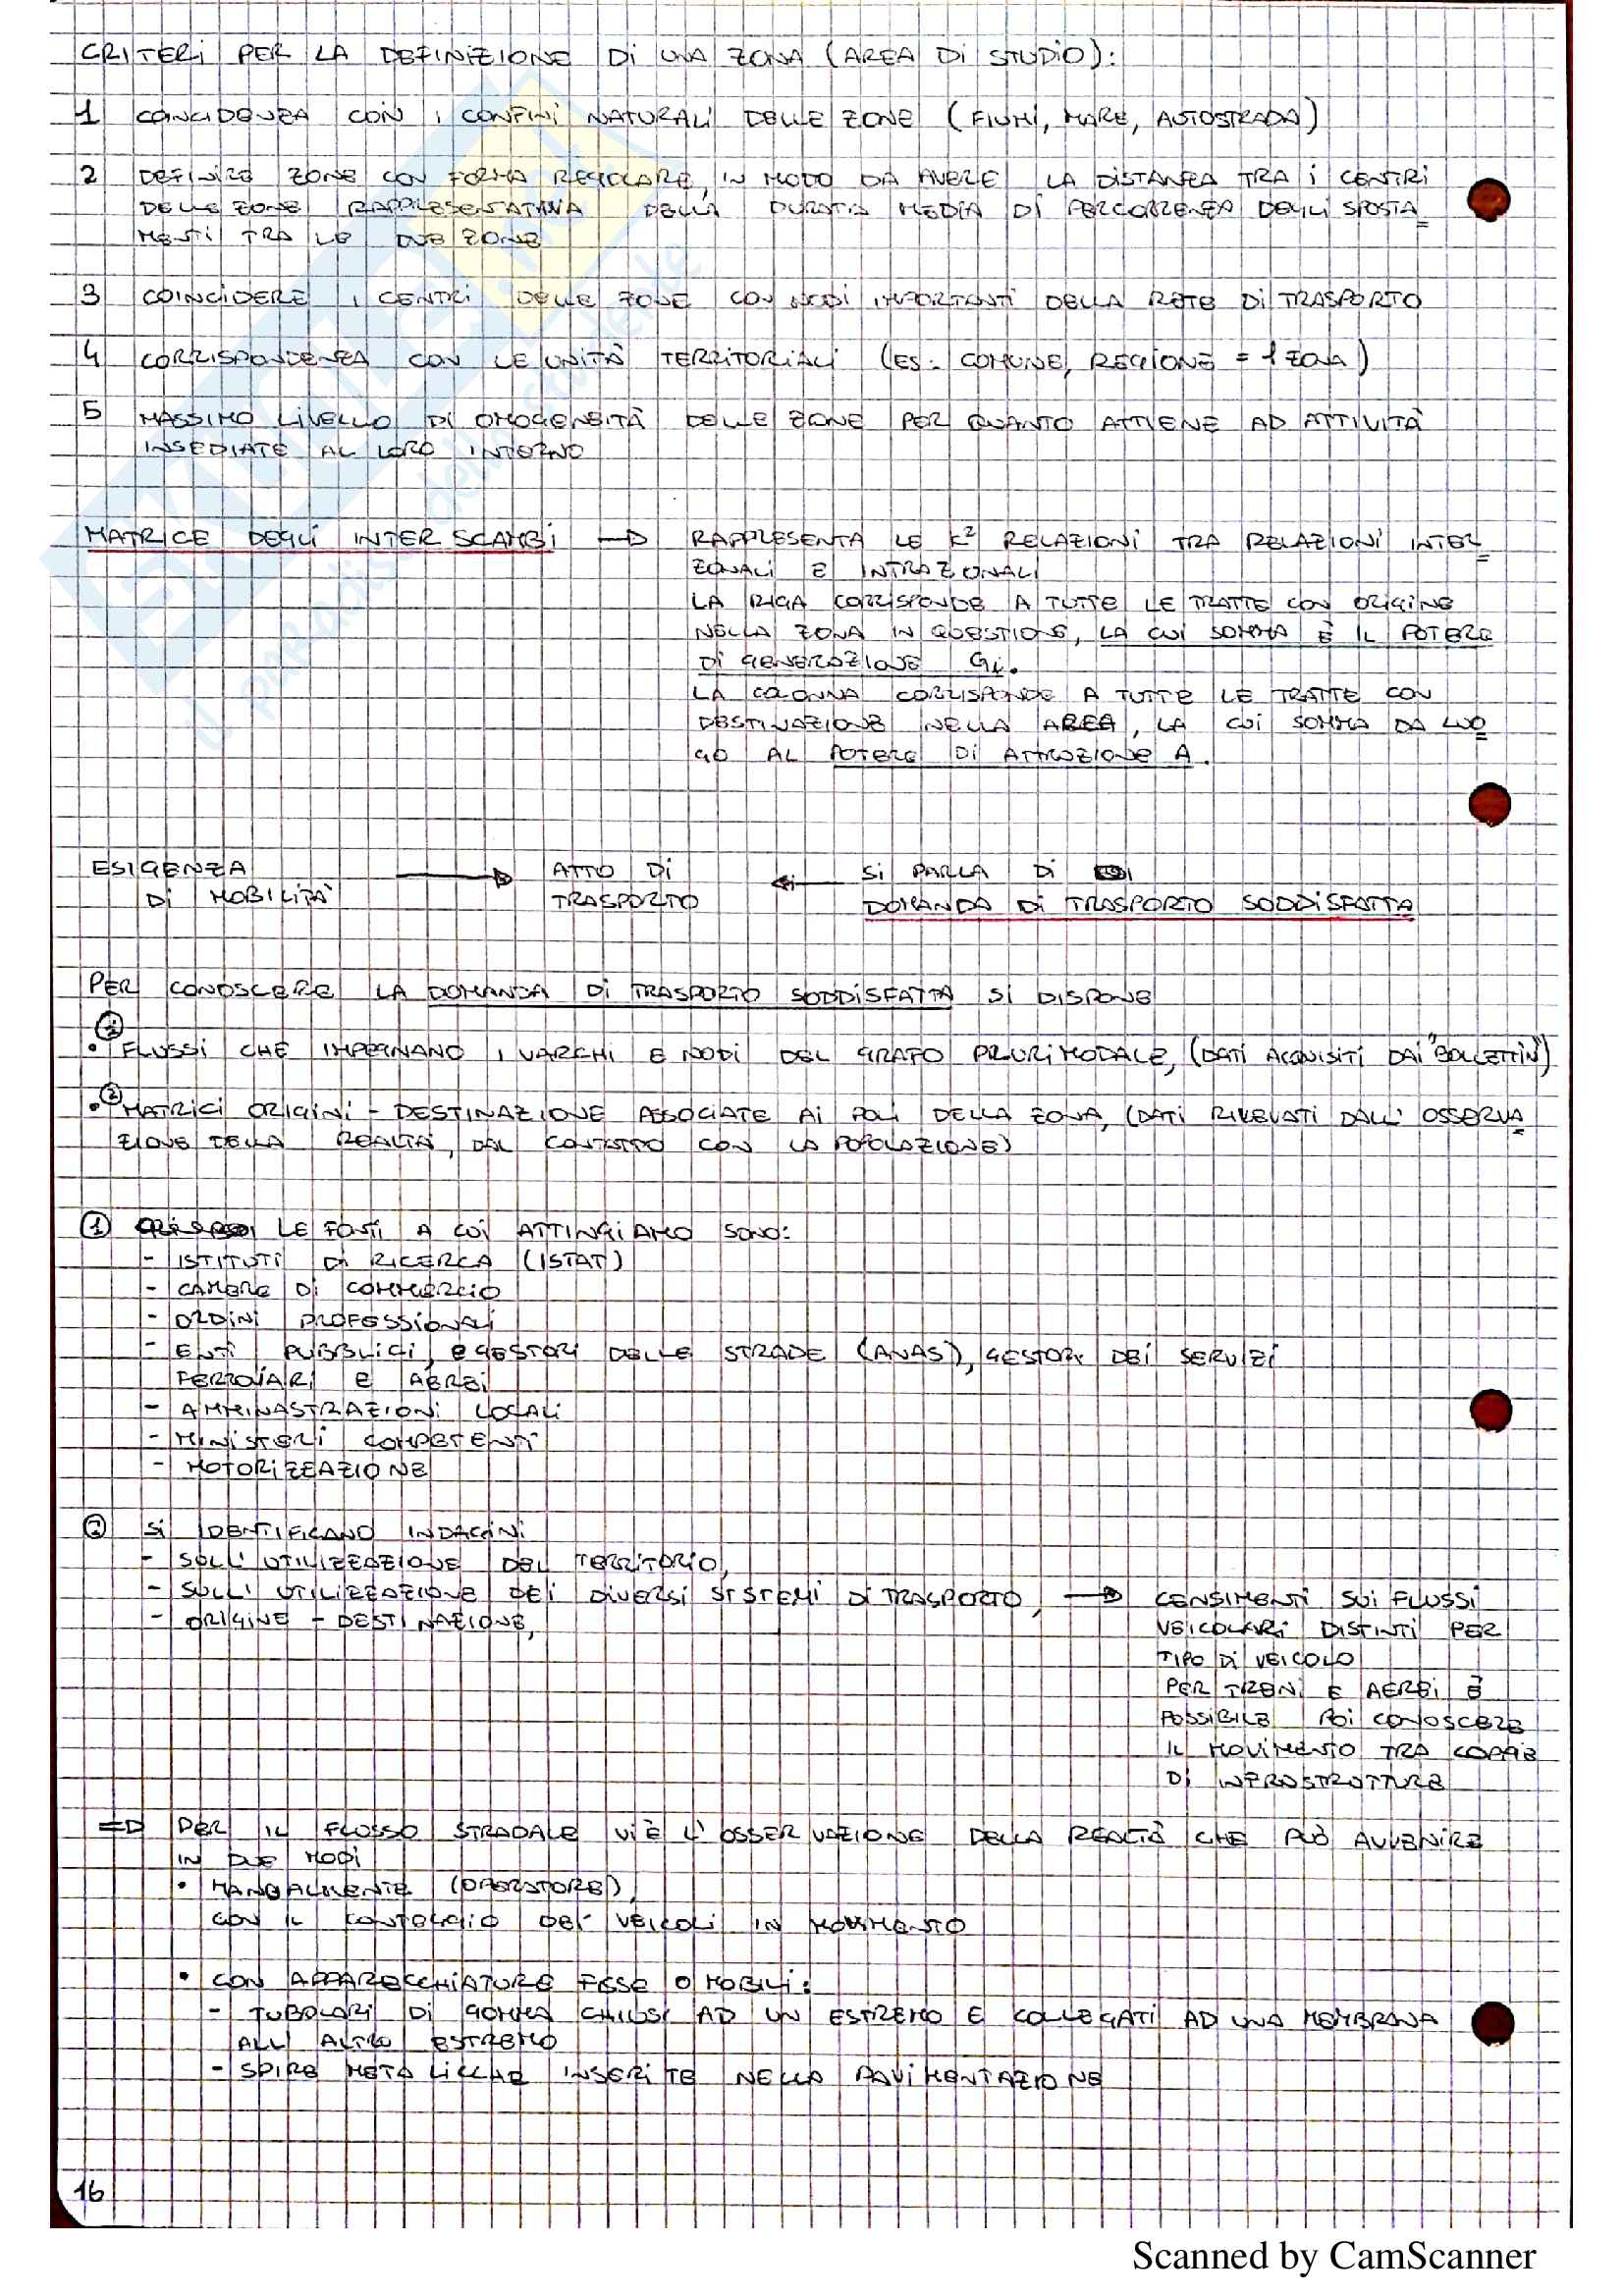 CRITERI PER LA DEFINIZIONE DI UNA ZONA (AREA DI STUDIO):
1 COINCIDENZA CON I CONFINI NATURALI DELLE ZONE (FIUMI, MARE, AUTOSTRADA)
2 DEFINIRE ZONE CON FORMA REGOLARE, IN MODO DA AVERE LA DISTANZA TRA I CENTRI
DELLE ZONE RAPPRESENTATIVA DELLA DURATA MEDIA DI PERCORRENZA DEGLI SPOSTA=
MENTI TRA LE DUE ZONE
3 COINCIDERE I CENTRI DELLE ZONE CON NODI IMPORTANTI DELLA RETE DI TRASPORTO
4 CORRISPONDENZA CON LE UNITÀ TERRITORIALI (ES. COMUNE, REGIONE = 1 ZONA)
5 MASSIMO LIVELLO DI OMOGENEITÀ DELLE ZONE PER QUANTO ATTIENE AD ATTIVITÀ
INSEDIATE AL LORO INTERNO
MATRICE DEGLI INTERSCAMBI → RAPPRESENTA LE K² RELAZIONI TRA RELAZIONI INTER=
ZONALI E INTRAZONALI
LA RIGA CORRISPONDE A TUTTE LE TRATTE CON ORIGINE
NELLA ZONA IN QUESTIONE, LA CUI SOMMA È IL POTERE
DI GENERAZIONE Gi.
LA COLONNA CORRISPONDE A TUTTE LE TRATTE CON
DESTINAZIONE NELLA AREA, LA CUI SOMMA DA LUO=
GO AL POTERE DI ATTRAZIONE A.
ESIGENZA DI MOBILITÀ → ATTO DI TRASPORTO ← SI PARLA DI
DOMANDA DI TRASPORTO SODDISFATTA
PER CONOSCERE LA DOMANDA DI TRASPORTO SODDISFATTA SI DISPONE
• ① FLUSSI CHE IMPEGNANO I VARCHI E NODI DEL GRAFO PLURIMODALE, (DATI ACQUISITI DAI "BOLLETTINI")
• ② MATRICI ORIGINI - DESTINAZIONE ASSOCIATE AI POLI DELLA ZONA, (DATI RILEVATI DALL'OSSERVA=
ZIONE DELLA REALTÀ, DAL CONTATTO CON LA POPOLAZIONE)
① LE FONTI A CUI ATTINGIAMO SONO:
- ISTITUTI DI RICERCA (ISTAT)
- CAMERE DI COMMERCIO
- ORDINI PROFESSIONALI
- ENTI PUBBLICI, E GESTORI DELLE STRADE (ANAS), GESTORI DEI SERVIZI
FERROVIARI E AEREI
- AMMINASTRAZIONI LOCALI
- MINISTERI COMPETENTI
- MOTORIZZAZIONE
② SI IDENTIFICANO INDAGINI
- SULL'UTILIZZAZIONE DEL TERRITORIO,
- SULL'UTILIZZAZIONE DEI DIVERSI SISTEMI DI TRASPORTO, → CENSIMENTI SUI FLUSSI
- ORIGINE - DESTINAZIONE,
VEICOLARI DISTINTI PER
TIPO DI VEICOLO
PER TRENI E AEREI È
POSSIBILE POI CONOSCERE
IL MOVIMENTO TRA COPPIE
DI INFRASTRUTTURE
⇒ PER IL FLUSSO STRADALE VI È L'OSSERVAZIONE DELLA REALTÀ CHE PUÒ AVVENIRE
IN DUE MODI
• MANUALMENTE (OPERATORE),
CON IL CONTEGGIO DEI VEICOLI IN MOVIMENTO
• CON APPARECCHIATURE FISSE O MOBILI:
- TUBOLARI DI GOMMA CHIUSI AD UN ESTREMO E COLLEGATI AD UNA MEMBRANA
ALL'ALTRO ESTREMO
- SPIRE METALLICHE INSERITE NELLA PAVIMENTAZIONE
16
Scanned by CamScanner